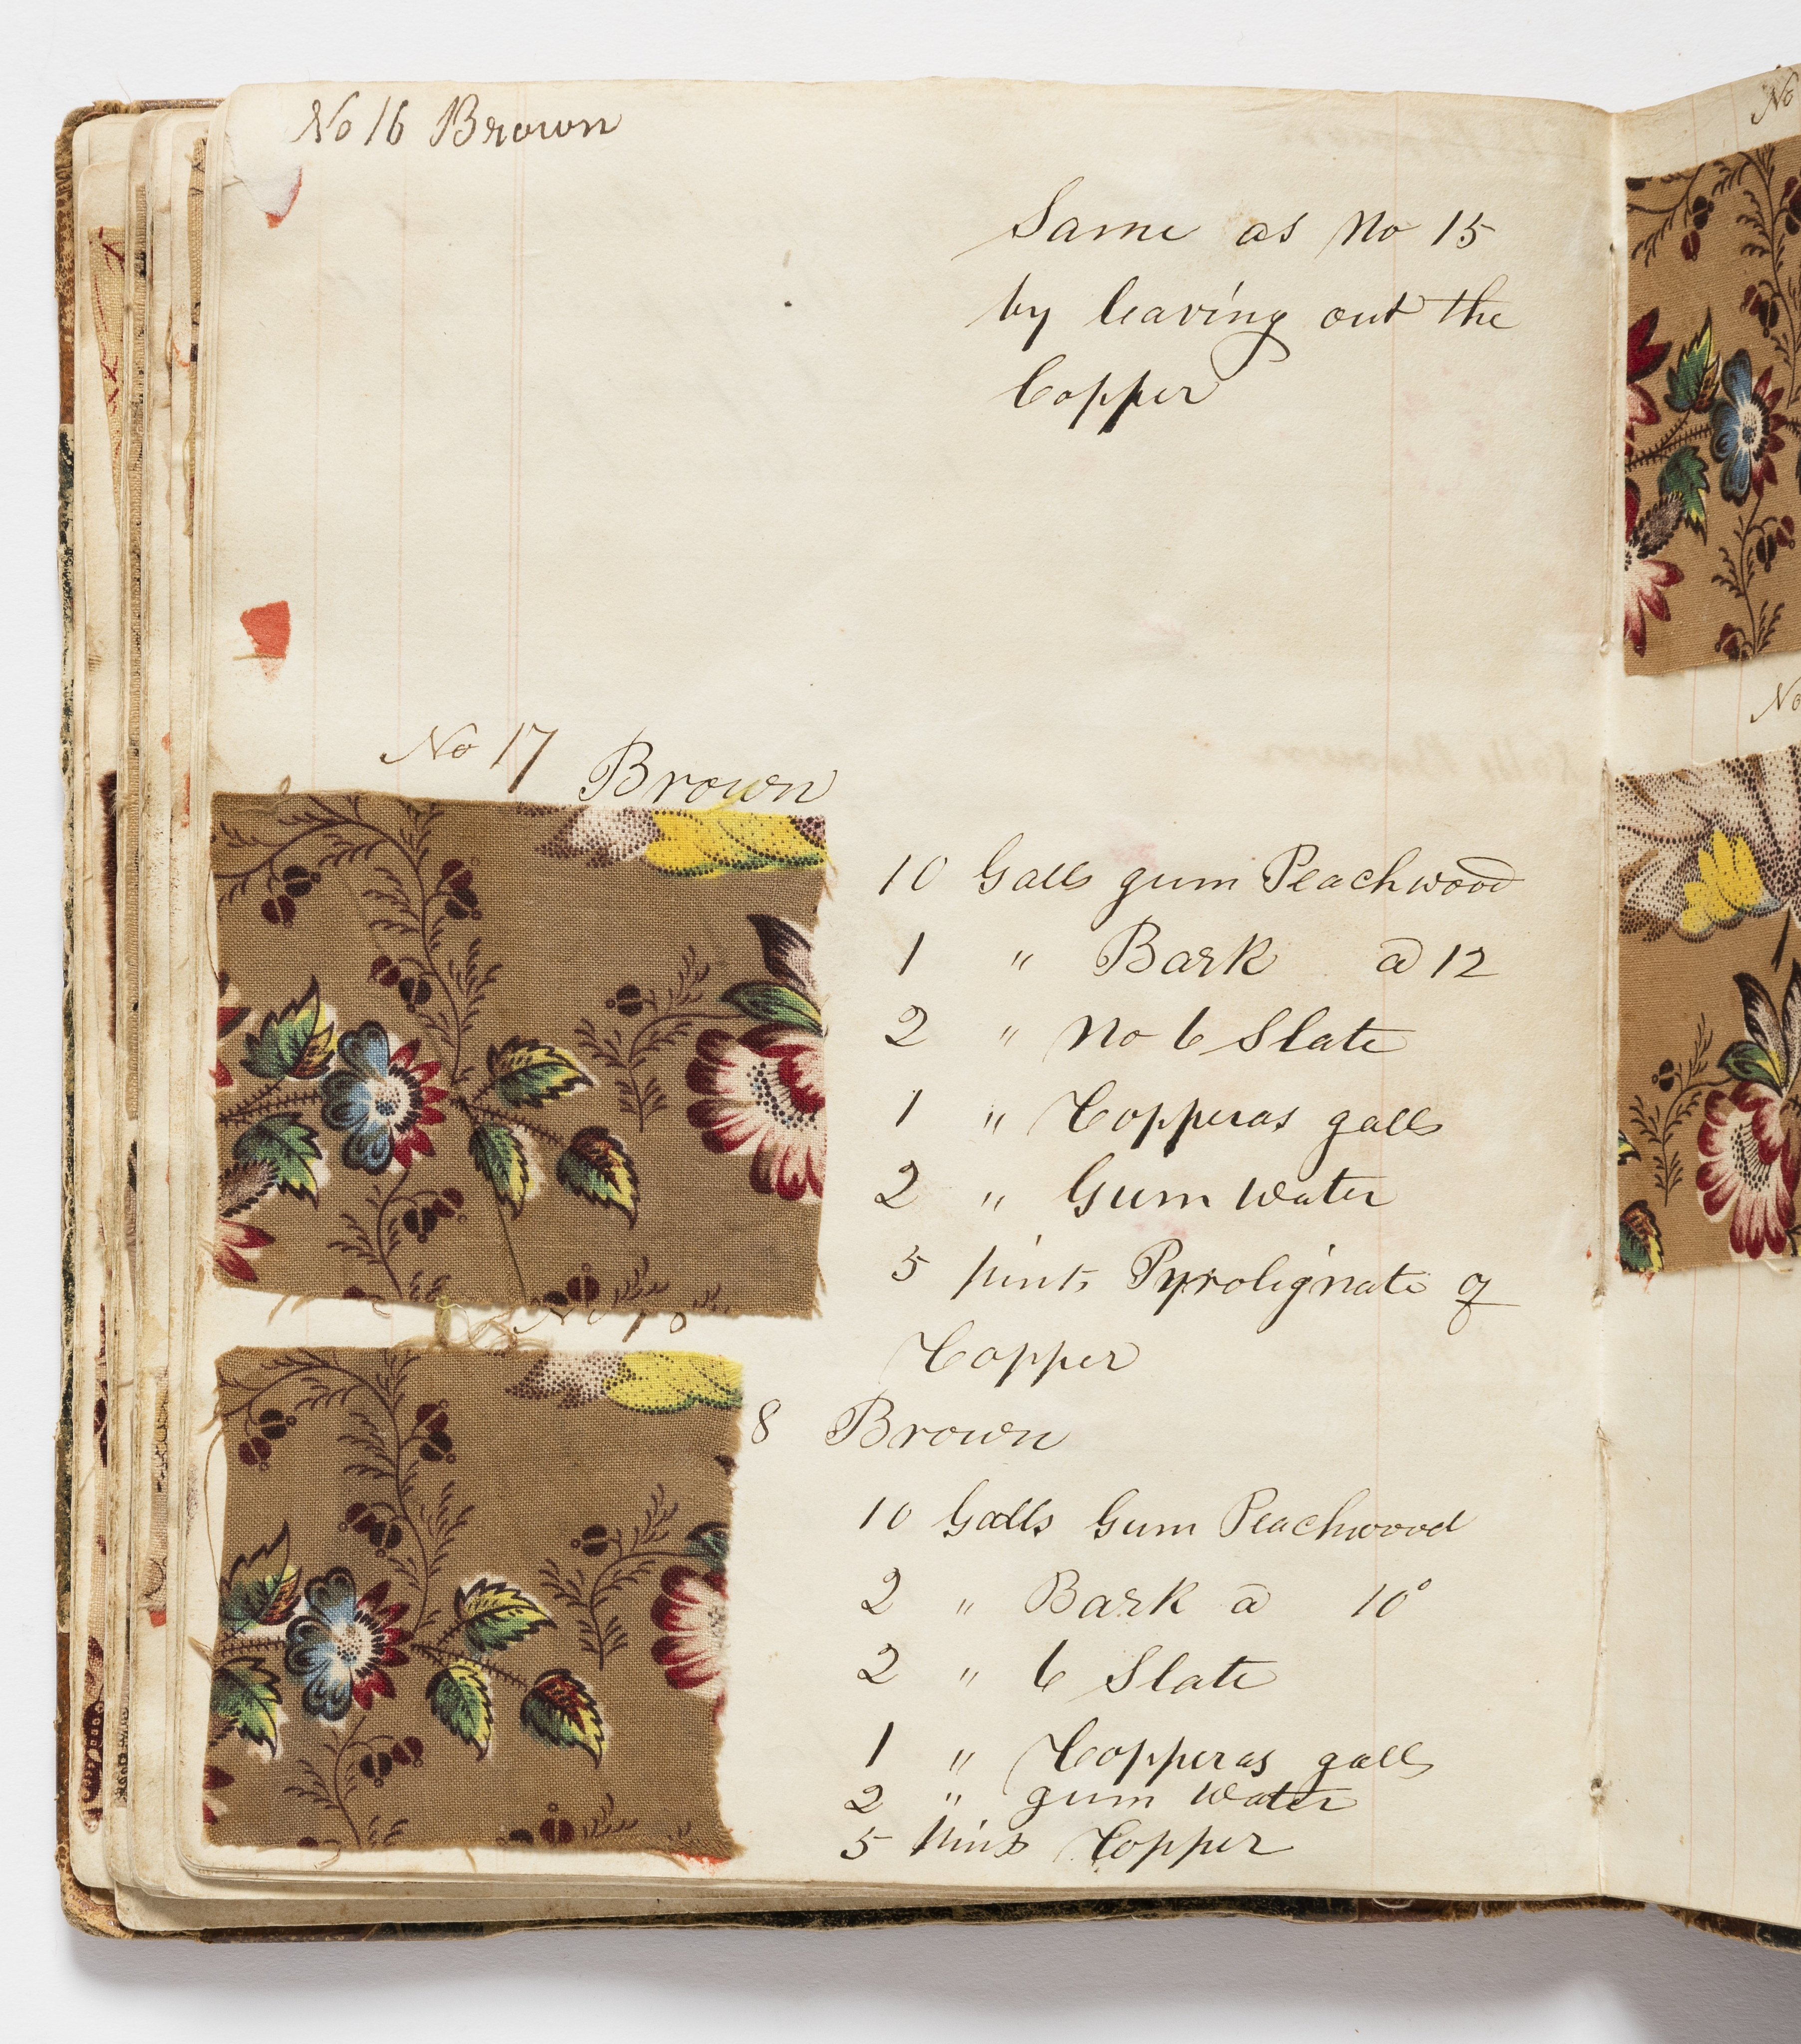 No 16 Brown
Same as No 15
by leaving out the
Copper
No 17 Brown
10 Galls gum Peachwood
1 " Bark @ 12
2 " No 6 Slate
1 " Copperas galls
2 " Gum Water
5 pints Pyrolignate of
Copper
No 18
8 Brown
10 Galls Gum Peachwood
2 " Bark @ 10°
2 " 6 Slate
1 " Copperas galls
2 " gum Water
5 pints Copper
No
No